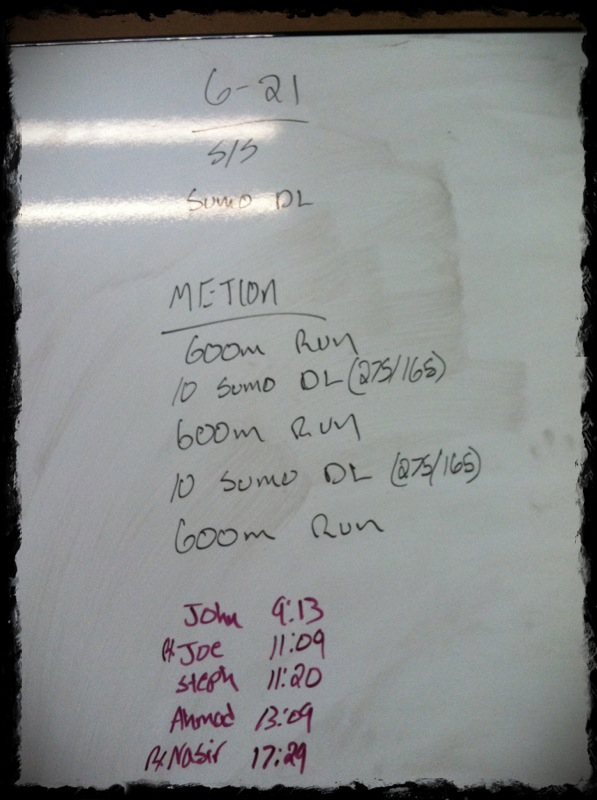 6-21
S/S
Sumo DL
METCON
600m Run
10 Sumo DL (275/165)
600m Run
10 Sumo DL (275/165)
600m Run
John 9:13
Rx Joe 11:09
Steph 11:20
Ahmad 13:09
Rx Nasir 17:29